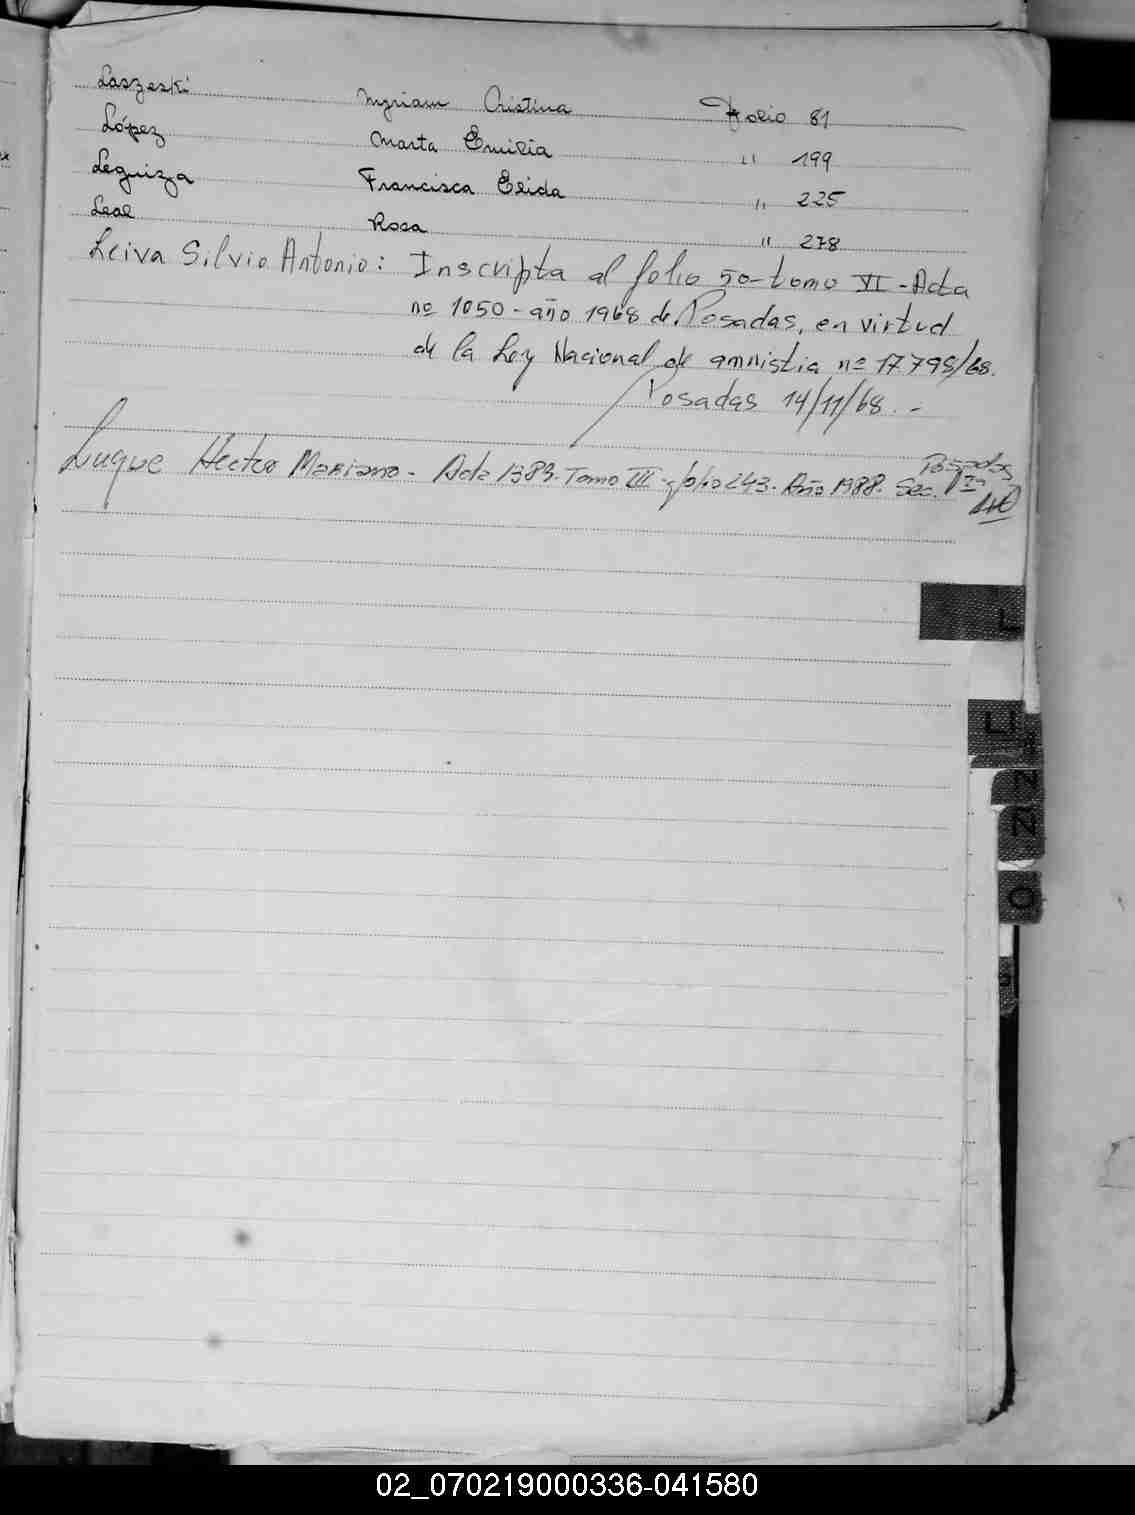 Laszeski Myriam Cristina Folio 81
López Marta Emilia " 199
Leguiza Francisca Elida " 225
Leal Rosa " 278
Leiva Silvio Antonio: Inscripta al folio 50-tomo VI-Acta
nº 1050-año 1968 de Posadas, en virtud
de la Ley Nacional de amnistia nº 17.798/68.
Posadas 14/11/68.-
Luque Hector Mariano- Acta 1383-Tomo III-folio 243-Año 1988-Sec. 1ra
Posadas
L
LL
N
Ñ
O
02_070219000336-041580